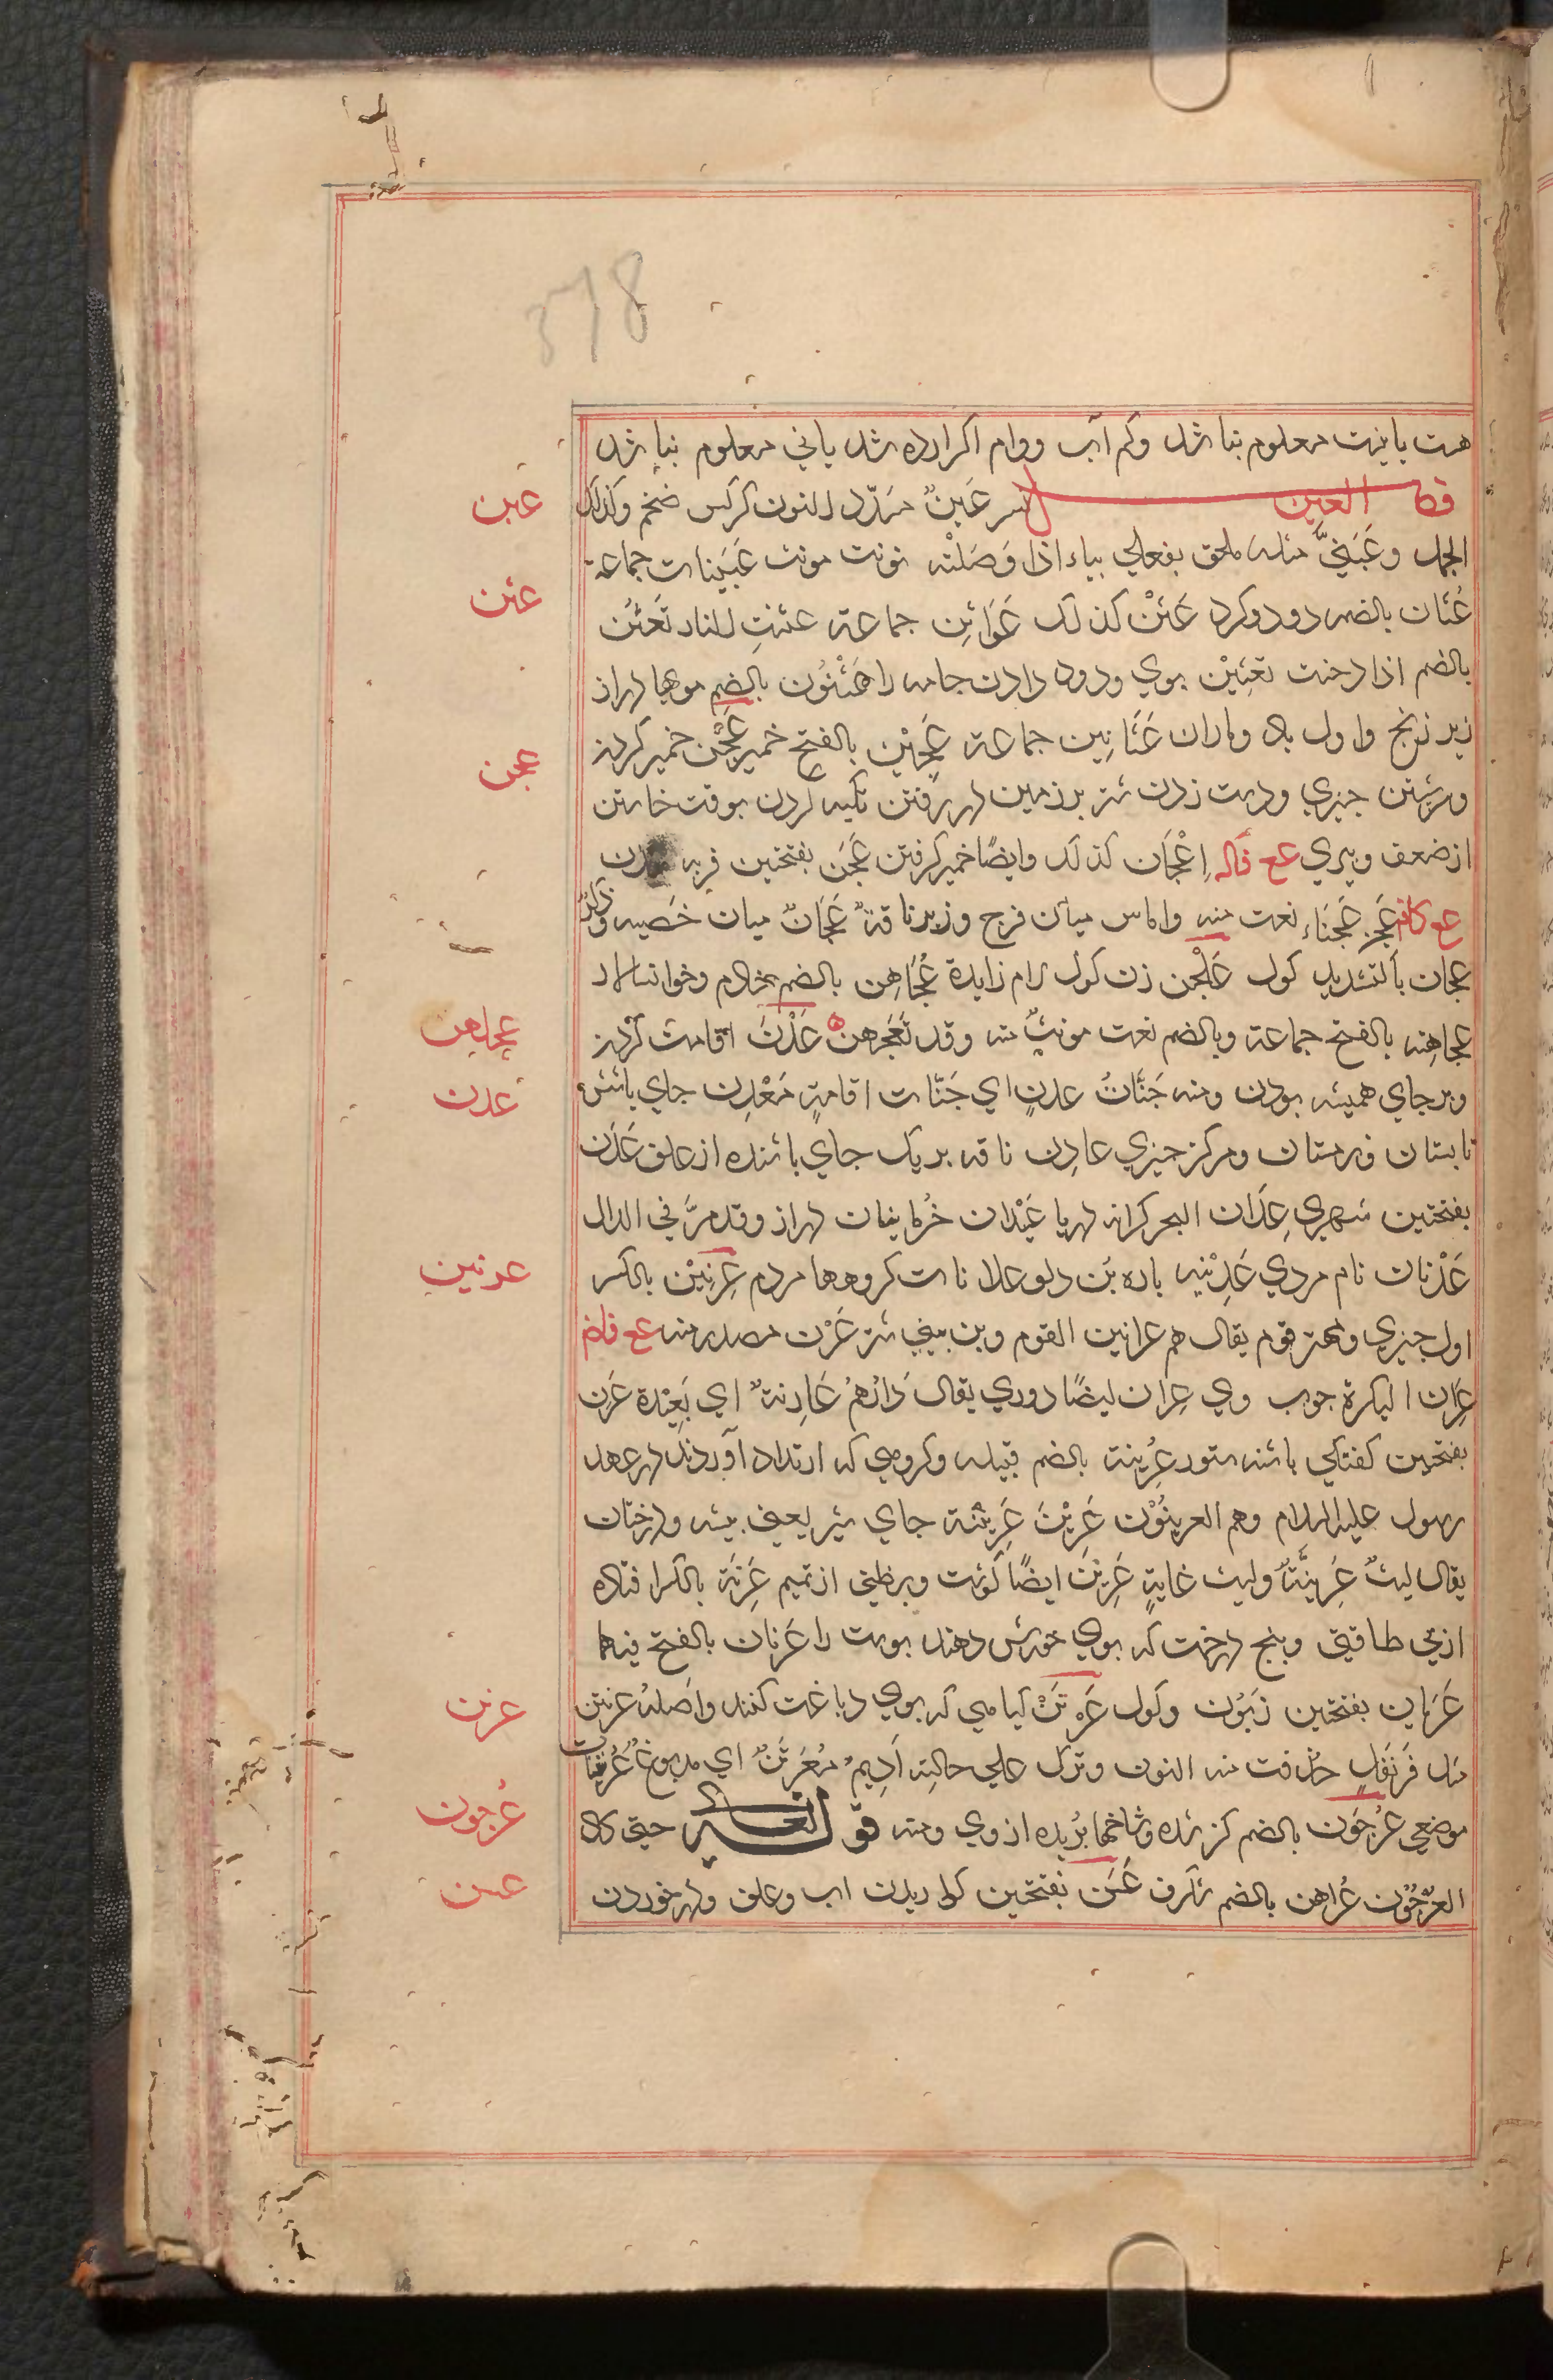 378
هست یا نیست معلوم نباشد وکم آب ووام اکرارده شد یا نی معلوم نباشد
فصل العين نسر عَبَنٌّ مشدّد النون کرکس ضخم وکذلک
عبن
الجمل وعَبَنّيٌّ مثله ملحق بفعلي بياء اذا وَصَلْتَه نونت مونث عَبَنّات جماعة
عثن
عُثَان بالضم دود وکرد عَثَنْ کذلک عَوَاثِن جماعة عثنتِ النار تَعْثُن
بالضم اذا دخنت تعثِيْن بوي ودود دادن جامه را عُثْنُون بالضم مویها دراز
زیر زنخ واول باد وباران عَثَانِين جماعة عَجِيْن بالفتح خمیر عَجْن خمیر کردن
عجن
وسرشتن چیزي ودست زدن شتر بر زمین در رفتن تکیه کردن بوقت خاستن
از ضعف وپیري عع فاله اِعْجَان کذلک وایضًا خمیر کرفتن عَجَن بفتحتین فربه شدن
عع کافه عَجِن عَجْنَاء نعت منه واماس میان فرج وزبر ناقةٌ عِجَانٌ میان خَصیه ودُبُر
عجان بالتشدید کول عَلْجَن زن کول لام زایدة عُجَاهِن بالضم خادم وخوانسالار
عجاهن
عجاهِنه بالفتح جماعة وبالضم نعت مونث منه وقد تَعَجْهَنَ عَدْن اقامت کردن
عدن
وبر جاي همیشه بودن ومنه جَنَّاتُ عدنٍ اي جَنّات اقامةٍ مَعْدِن جاي باشش
تابستان وزمستان ومرکز چیزي عادِن ناقه بر یک جاي باشنده از علف عَدَن
بفتحتین شهري عِدَان البحر کرانه دریا عَيْدان خُرمابنان دراز وقد مرّ في الدال
عَدْنان نام مردي عَدِيْنه باره بُن دلو عدانات کروهها مردم عِرنِيْن بالکسر
عرنین
اول چیزي ومهتر قوم یقال هم عرانین القوم وبن بیني شتر عَرْن مصدر منه عع فاض
عِرَان البکرة چوب وي عِران ایضًا دوري یقال دَارُهُمْ عَارِنةٌ اي بَعِيْدة عَرَن
بفتحتین کفتکي پاشنه ستور عُرَينة بالضم قبیله وکروهي که ارتداد آوردند در عهد
رسول علیه السلام وهم العرينُوْن عَرِيْن عَرِيْنَة جاي شیر یعني بیشه ودرختان
یقال لیثُ عَرِينَةٍ ولیث غابةٍ عَرِيْن ایضًا کوشت وبرظني از تمیم عَرَنَة بالکسر افتاده
از بي طاقتي وبیخ درخت که بوي خورش دهند پوست را عِرْنان بالفتح فیهما
عَرَبان بفتحتین زَبُون وکول عَرَتَنْ کیاهي که بوي دباغت کنند واصله عرنتن
عرتن
مثل قَرَنْفُل حذفت منه النون وترک علي حالته اَدِيم مُعَرْتَنٌ اي مدبوغٌ عُرَيتنات
موضعي عُرْجُون بالضم کژ شده وشاخها بُریده از وي ومنه قوله تعالى حتی کان
عُرجون
العُرْجُوْن عُراهن بالضم شکرف عَسَن بفتحتین کوارید ن اب وعلف ودر خوردن
عسن